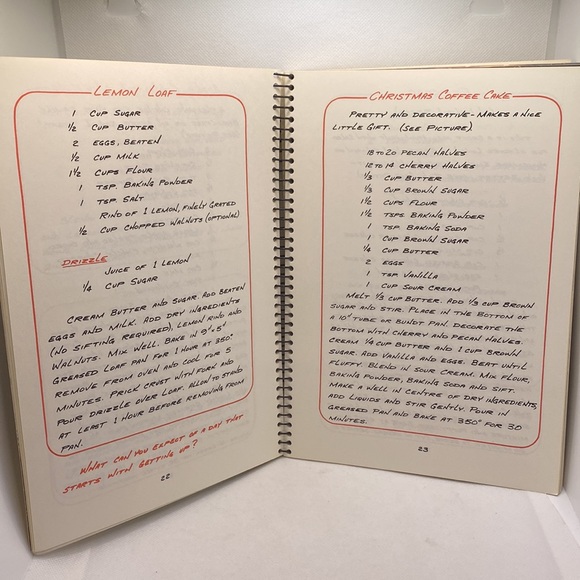 LEMON LOAF
1 CUP SUGAR
½ CUP BUTTER
2 EGGS, BEATEN
½ CUP MILK
1½ CUPS FLOUR
1 TSP. BAKING POWDER
1 TSP. SALT
RIND OF 1 LEMON, FINELY GRATED
½ CUP CHOPPED WALNUTS (OPTIONAL)
DRIZZLE
JUICE OF 1 LEMON
¼ CUP SUGAR
CREAM BUTTER AND SUGAR. ADD BEATEN
EGGS AND MILK. ADD DRY INGREDIENTS
(NO SIFTING REQUIRED), LEMON RIND AND
WALNUTS. MIX WELL. BAKE IN 9"x 5"
GREASED LOAF PAN FOR 1 HOUR AT 350°
REMOVE FROM OVEN AND COOL FOR 5
MINUTES. PRICK CRUST WITH FORK AND
POUR DRIZZLE OVER LOAF. ALLOW TO STAND
AT LEAST 1 HOUR BEFORE REMOVING FROM
PAN.
WHAT CAN YOU EXPECT OF A DAY THAT
STARTS WITH GETTING UP?
22
CHRISTMAS COFFEE CAKE
PRETTY AND DECORATIVE - MAKES A NICE
LITTLE GIFT. (SEE PICTURE).
18 TO 20 PECAN HALVES
12 TO 14 CHERRY HALVES
⅓ CUP BUTTER
⅓ CUP BROWN SUGAR
1½ CUPS FLOUR
1½ TSPS BAKING POWDER
1 TSP. BAKING SODA
1 CUP BROWN SUGAR
¼ CUP BUTTER
2 EGGS
1 TSP. VANILLA
1 CUP SOUR CREAM
MELT ⅓ CUP BUTTER. ADD ⅓ CUP BROWN
SUGAR AND STIR. PLACE IN THE BOTTOM OF
A 10" TUBE OR BUNDT PAN. DECORATE THE
BOTTOM WITH CHERRY AND PECAN HALVES.
CREAM ¼ CUP BUTTER AND 1 CUP BROWN
SUGAR. ADD VANILLA AND EGGS. BEAT UNTIL
FLUFFY. BLEND IN SOUR CREAM. MIX FLOUR,
BAKING POWDER, BAKING SODA AND SIFT.
MAKE A WELL IN CENTRE OF DRY INGREDIENTS,
ADD LIQUIDS AND STIR GENTLY. POUR IN
GREASED PAN AND BAKE AT 350° FOR 30
MINUTES.
23